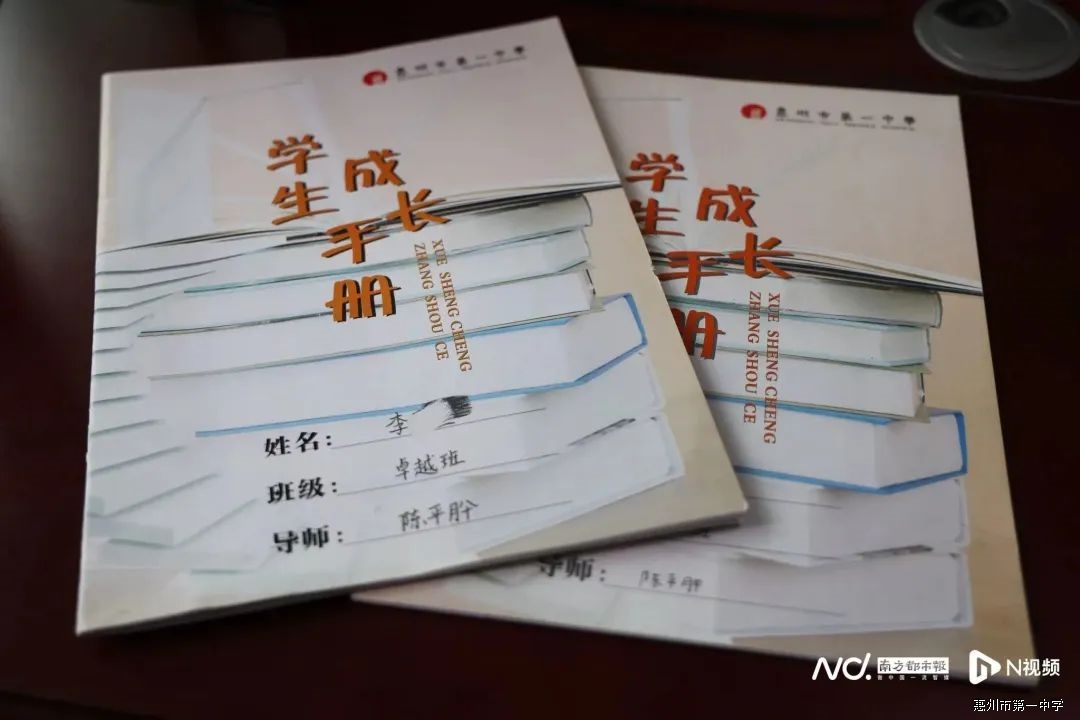 惠州市第一中学
学生
成长
手册
XUE SHENG CHENG
ZHANG SHOU CE
姓名：李
班级：卓越班
导师：陈平
惠州市第一中学
学生
成长
手册
XUE SHENG CHENG
ZHANG SHOU CE
导师：陈平
ND. 南方都市報
N视频
惠州市第一中学